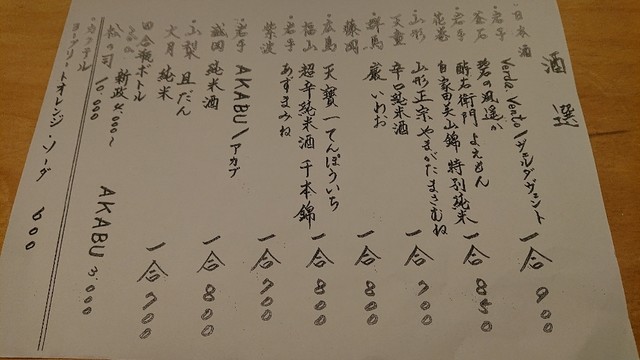 酒選
・日本酒
・岩手 Verde Vento/ヴェルダヴェント 一合 900
釜石 碧の風 遥か
・岩手 酔右衛門 よえもん 一合 850
花巻 自家田美山錦 特別純米
・山形 山形正宗 やまがたまさむね 一合 700
天童 辛口純米酒
・群馬 巌 いわお 一合 800
藤岡
・広島 天寳一 てんぽういち 一合 800
福山 超辛純米酒 千本錦
・岩手 あずまみね 一合 700
紫波
・岩手 AKABU/アカブ 一合 800
盛岡 純米酒
・山梨 旦 だん 一合 700
大月 純米
四合瓶ボトル
新政 4.000〜 AKABU 3.000
松の司 10.000
・カクテル
ヨーグリートオレンジ・ソーダ 600